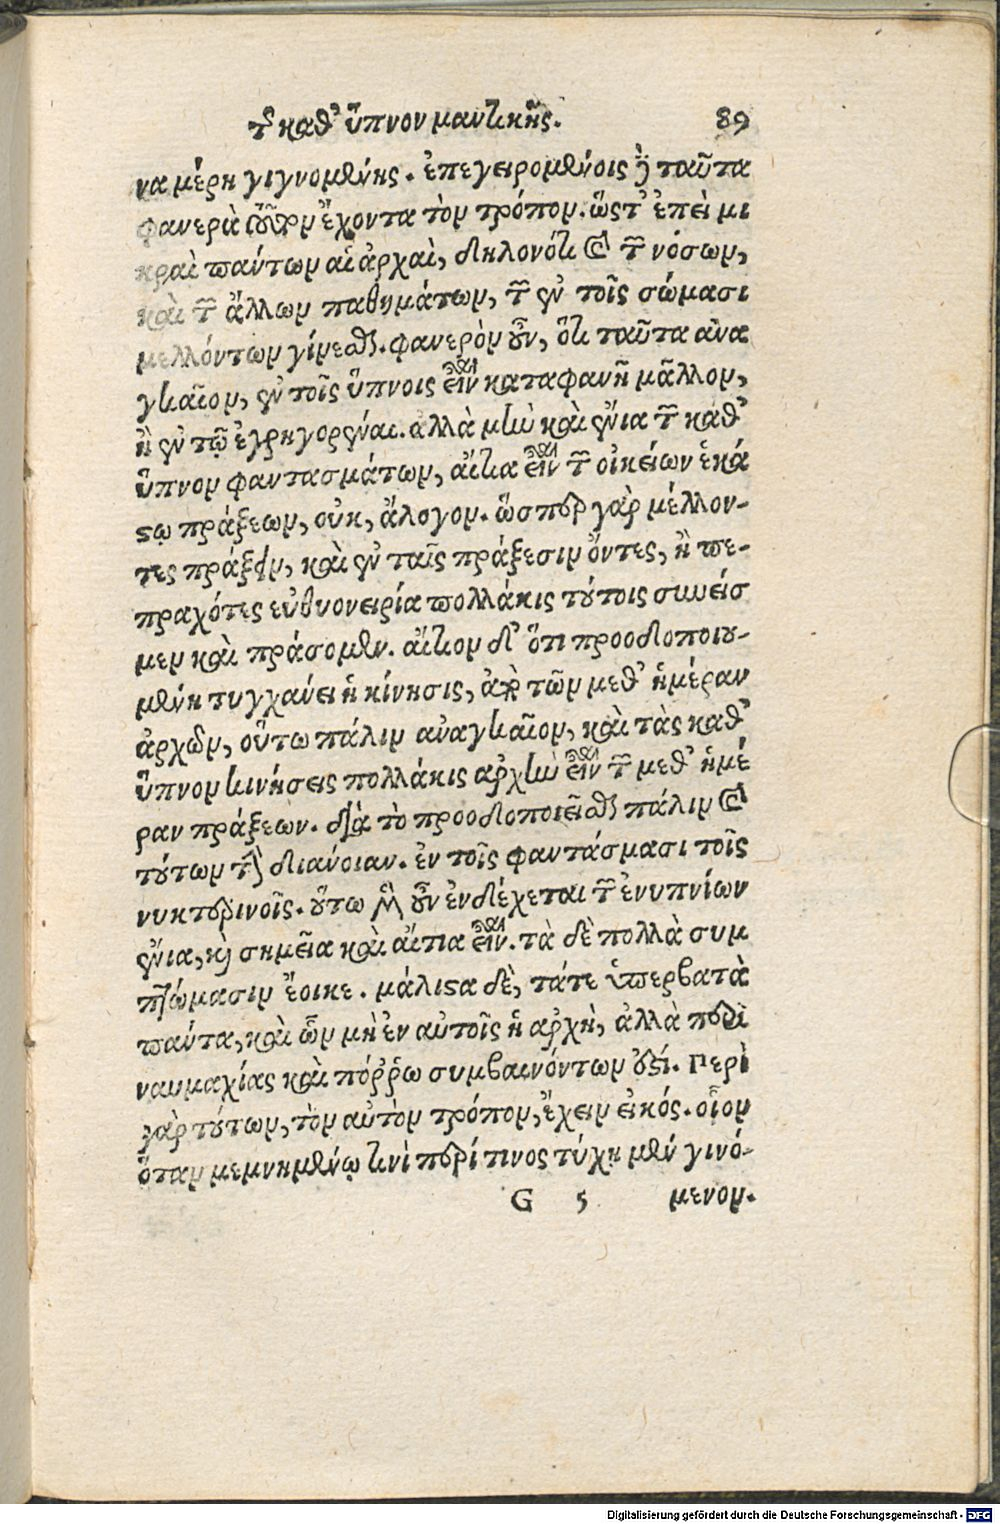 τῆς καθ' ὕπνον μαντικῆς. 89
να μέρη γιγνομένης. ἐπεγειρομένοις δὲ ταῦτα
φανερὰ τοῦτον ἔχοντα τὸν τρόπον. ὥστ' ἐπεὶ μι
κραὶ πάντων αἱ ἀρχαὶ, δηλονότι καὶ τῶν νόσων,
καὶ τῶν ἄλλων παθημάτων, τῶν ἐν τοῖς σώμασι
μελλόντων γίνεσθαι. φανερὸν οὖν, ὅτι ταῦτα ἀνα
γκαῖον, ἐν τοῖς ὕπνοις εἶναι καταφανῆ μᾶλλον,
ἢ ἐν τῷ ἐγρηγορέναι. ἀλλὰ μὴν καὶ ἔνια τῶν καθ'
ὕπνον φαντασμάτων, αἴτια εἶναι τῶν οἰκείων ἑκά
στῳ πράξεων, οὐκ, ἄλογον. ὥσπερ γὰρ μέλλον-
τες πράξειν, καὶ ἐν ταῖς πράξεσιν ὄντες, ἢ πε-
πραχότες εὐθυονειρία πολλάκις τούτοις συνεισ
μεν καὶ πράσομεν. αἴτιον δ' ὅτι προοδοποιου-
μένη τυγχάνει ἡ κίνησις, ἀπὸ τῶν μεθ' ἡμέραν
ἀρχῶν, οὕτω πάλιν ἀναγκαῖον, καὶ τὰς καθ'
ὕπνον κινήσεις πολλάκις ἀρχὴν εἶναι τῶν μεθ' ἡμέ
ραν πράξεων. διὰ τὸ προοδοποιεῖσθαι πάλιν καὶ
τούτων τὴν διάνοιαν. ἐν τοῖς φαντάσμασι τοῖς
νυκτερινοῖς. οὕτω μὲν οὖν ἐνδέχεται τῶν ἐνυπνίων
ἔνια, καὶ σημεῖα καὶ αἴτια εἶναι. τὰ δὲ πολλὰ συμ
πτώμασιν ἔοικε. μάλιστα δὲ, τάτε ὑπερβατὰ
πάντα, καὶ ὧν μὴ ἐν αὐτοῖς ἡ ἀρχὴ, ἀλλὰ περὶ
ναυμαχίας καὶ πόῤῥω συμβαινόντων ἐστί. Περὶ
γὰρ τούτων, τὸν αὐτὸν τρόπον, ἔχειν εἰκός. οἷον
ὅταν μεμνημένῳ τινὶ περί τινος τύχη μὲν γινό-
G 5 μενον.
Digitalisierung gefördert durch die Deutsche Forschungsgemeinschaft - DFG